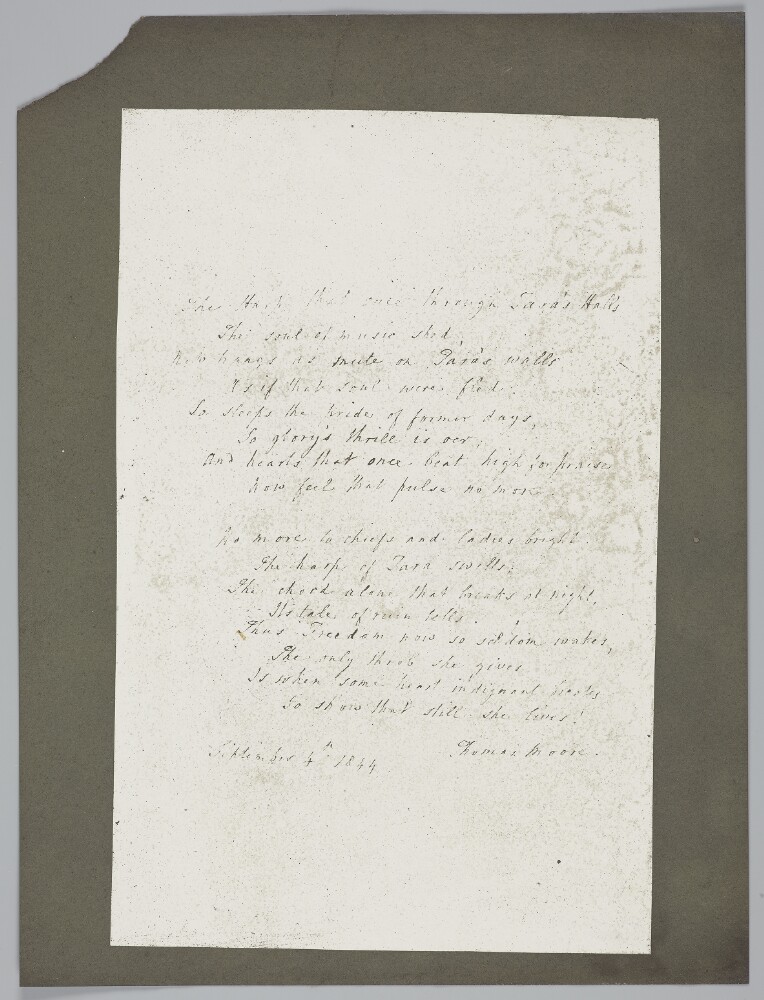 The Harp that once through Tara's Halls
The soul of music shed,
Now hangs as mute on Tara's walls
As if that soul were fled.
So sleeps the pride of former days,
So glory's thrill is oer,
And hearts that once beat high for praise
Now feel that pulse no more.
No more to chiefs and ladies bright
The harp of Tara swells;
The chord alone that breaks at night,
Its tale of ruin tells.
Thus Freedom now so seldom wakes,
The only throb she gives
Is when some heart indignant breaks
To show that still she lives!
September 4th 1844
Thomas Moore.